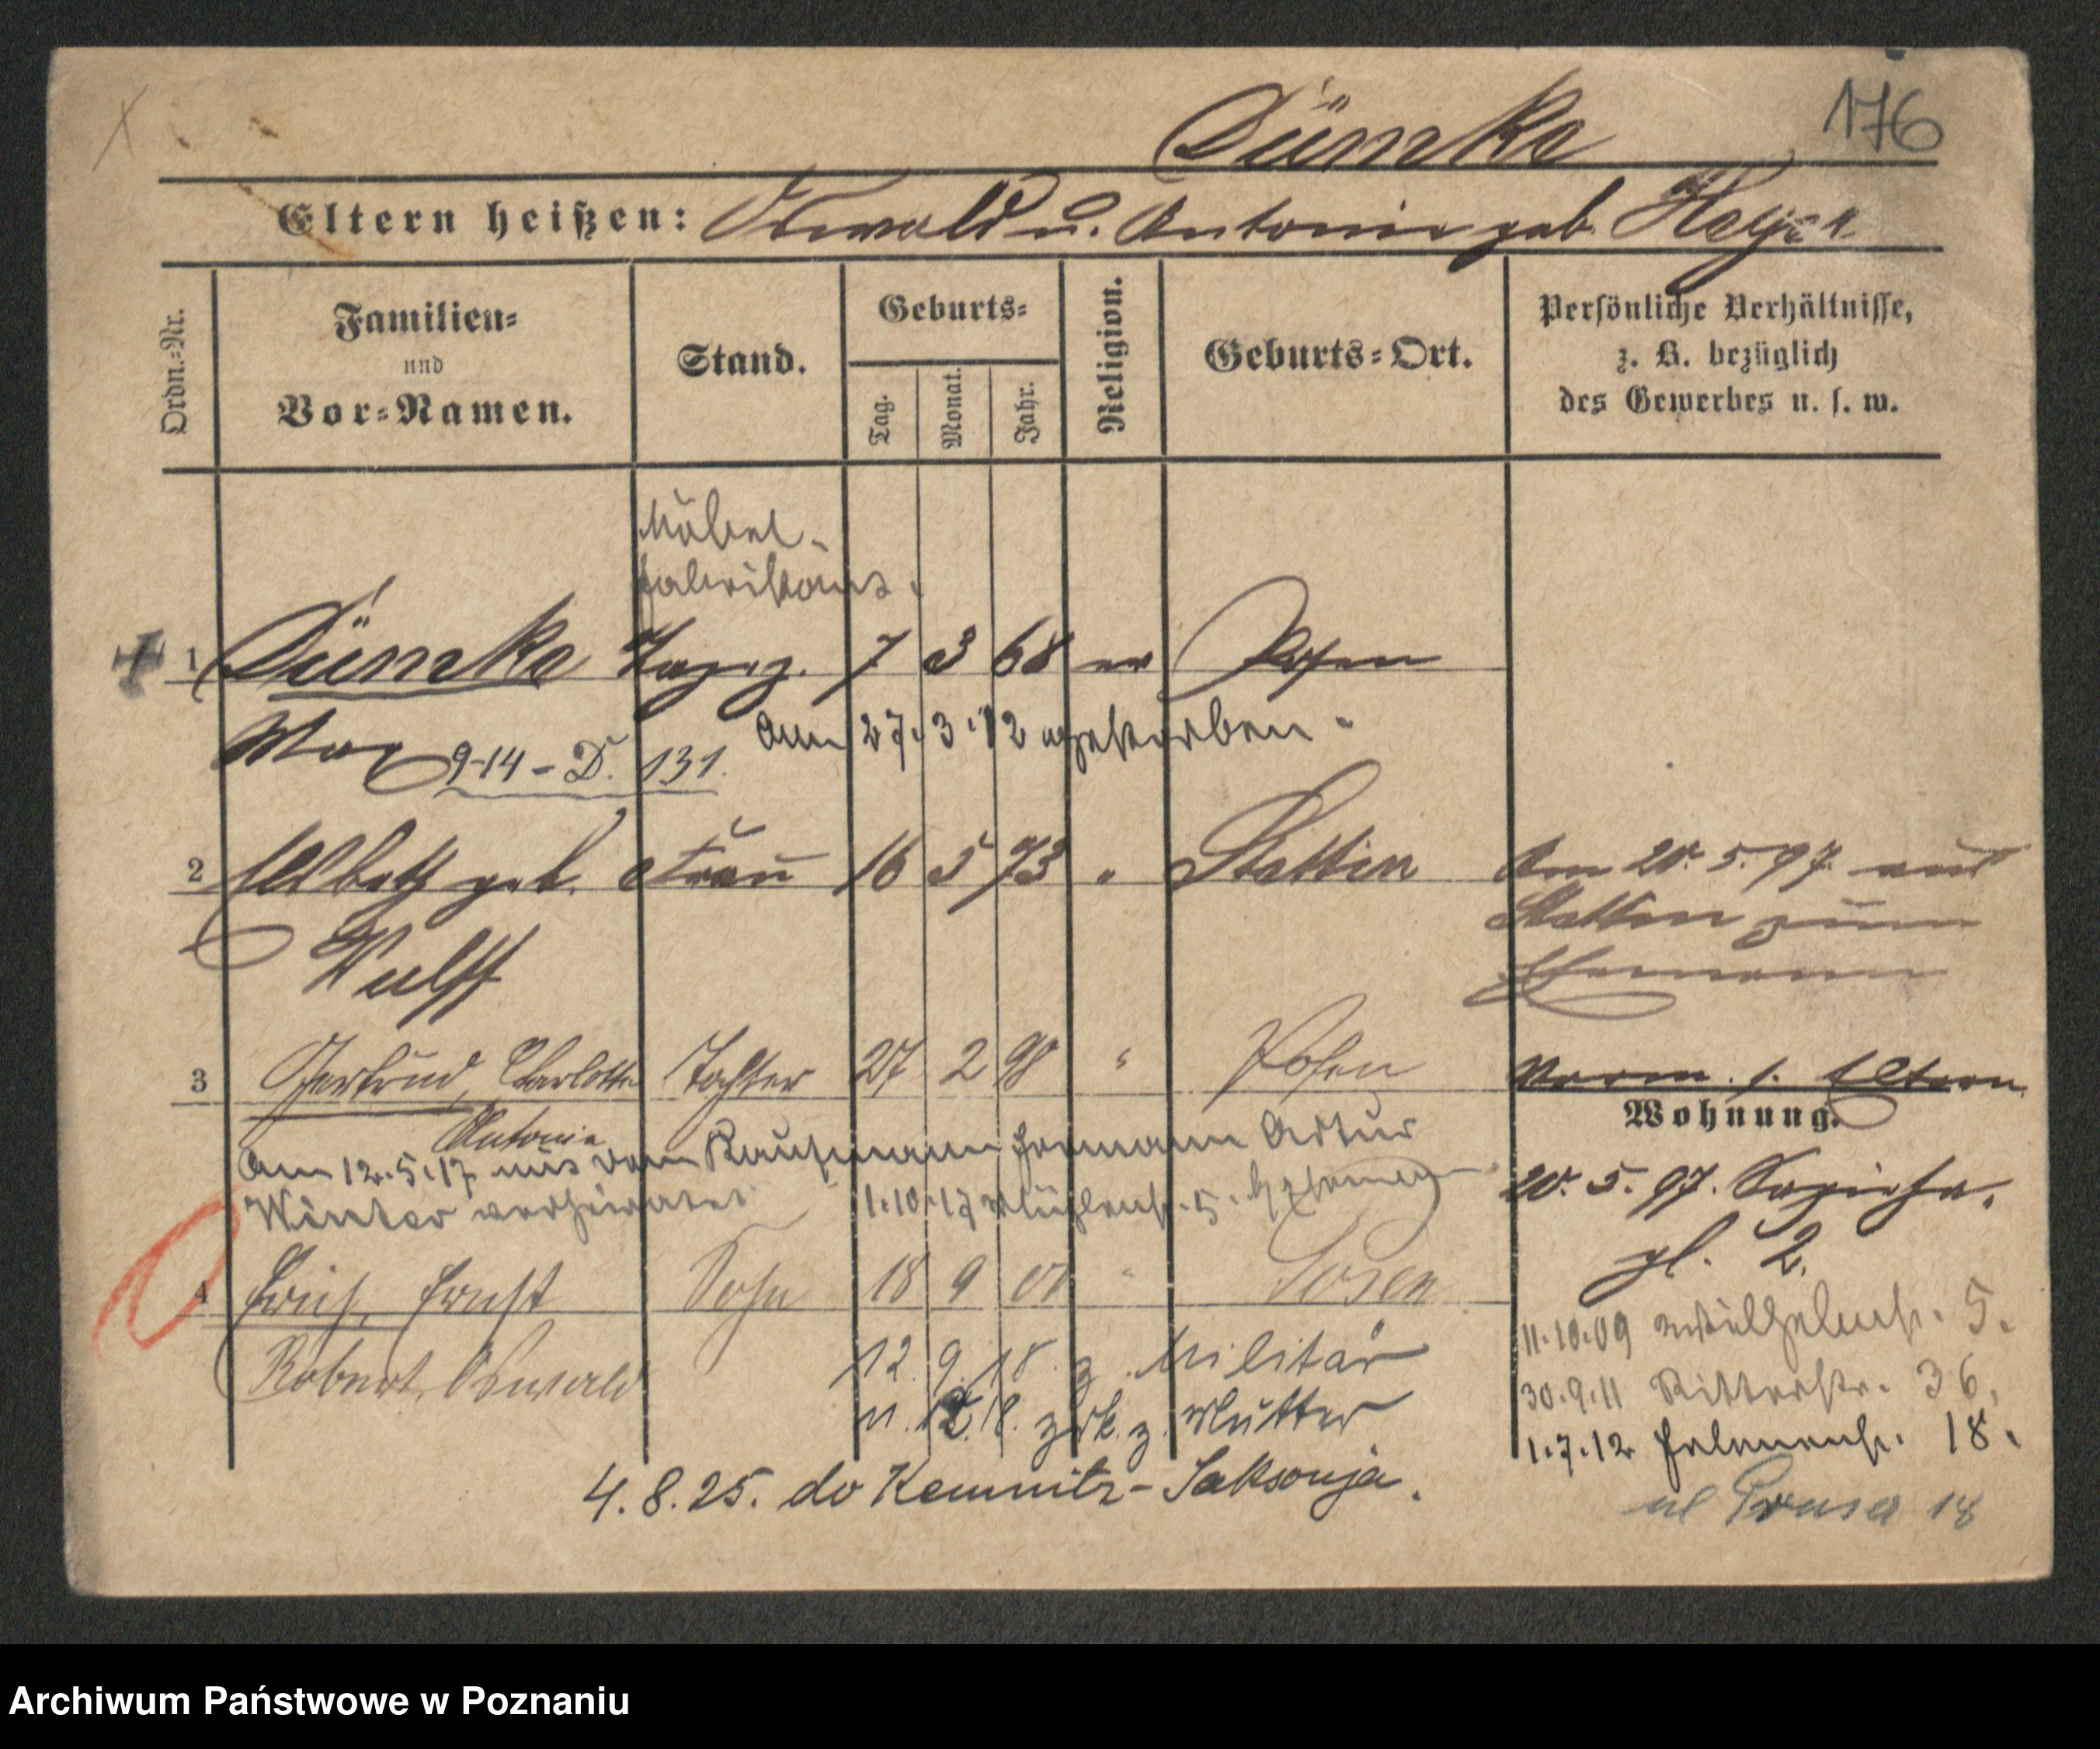 176
Dümke
Eltern heißen: Oswald u. Antonie geb. Heyer
Ordn.-Nr.
Familien- und Vor-Namen.
Stand.
Geburts-
Tag.
Monat.
Jahr.
Religion.
Geburts-Ort.
Persönliche Verhältnisse,
z. B. bezüglich
des Gewerbes u. s. w.
Möbel-
fabrikant.
1 Dümke Tapez. 7 3 68 ev Posen
Max 9-14-D. 131.
Am 27.3.12 gestorben.
2 geb. Frau 16 5 73 " Stettin
Wulff
Am 20.5.97 aus
Stettin zum
Ehemann
3 Gertrud, Charlotte Tochter 27 2 98 " Posen
Antonie
Am 12.5.17 mit dem Kaufmann Hermann Artur
Winter verheiratet 1.10.17 Mühlenstr. 5.
Norm. s. Eltern
Wohnung.
20.5.97. Sapieha.
pl. 2.
11.10.09 Wilhelmstr. 5.
30.9.11 Ritterstr. 36.
1.7.12 18.
ul Prusa 18
4 Erich, Ernst Sohn 18 9 00 " Posen
Robert, Oswald
12.9.18. z. Militär
11.12.18. zrk. z. Mutter
4.8.25. do Kemnitz-Saksonja.
Archiwum Państwowe w Poznaniu